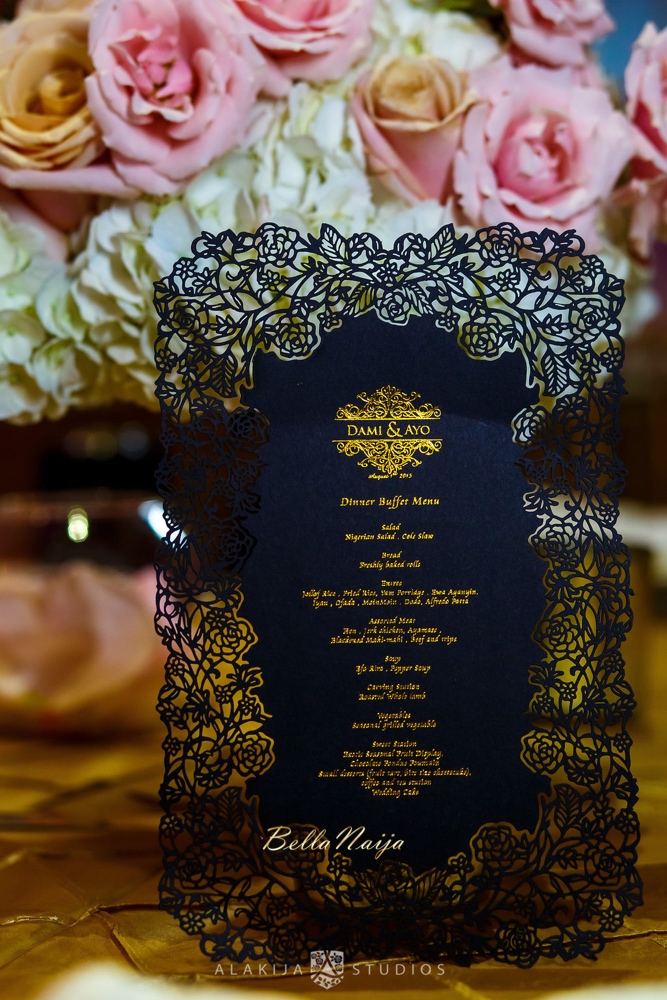 DAMI & AYO
August 2013
Dinner Buffet Menu
Salad
Nigerian Salad . Cole Slaw
Bread
Freshly baked rolls
Entree
Jollof Rice , Fried Rice, Yam Porridge . Ewa Aganyin.
Iyan , Ofada , MoinMoin . Dodo, Alfredo Pasta
Assorted Meat
Hen , Jerk chicken, Ayamase ,
Blackened Mahi-mahi , Beef and tripe
Soup
Efo Riro , Pepper Soup
Carving Station
Roasted Whole lamb
Vegetables
Seasonal grilled vegetable
Sweet Station
Exotic Seasonal Fruit Display,
Chocolate Fondue Fountain
Small desserts (fruit tart, bite size cheesecake),
coffee and tea station
Wedding Cake
BellaNaija
ALAKIJA STUDIOS